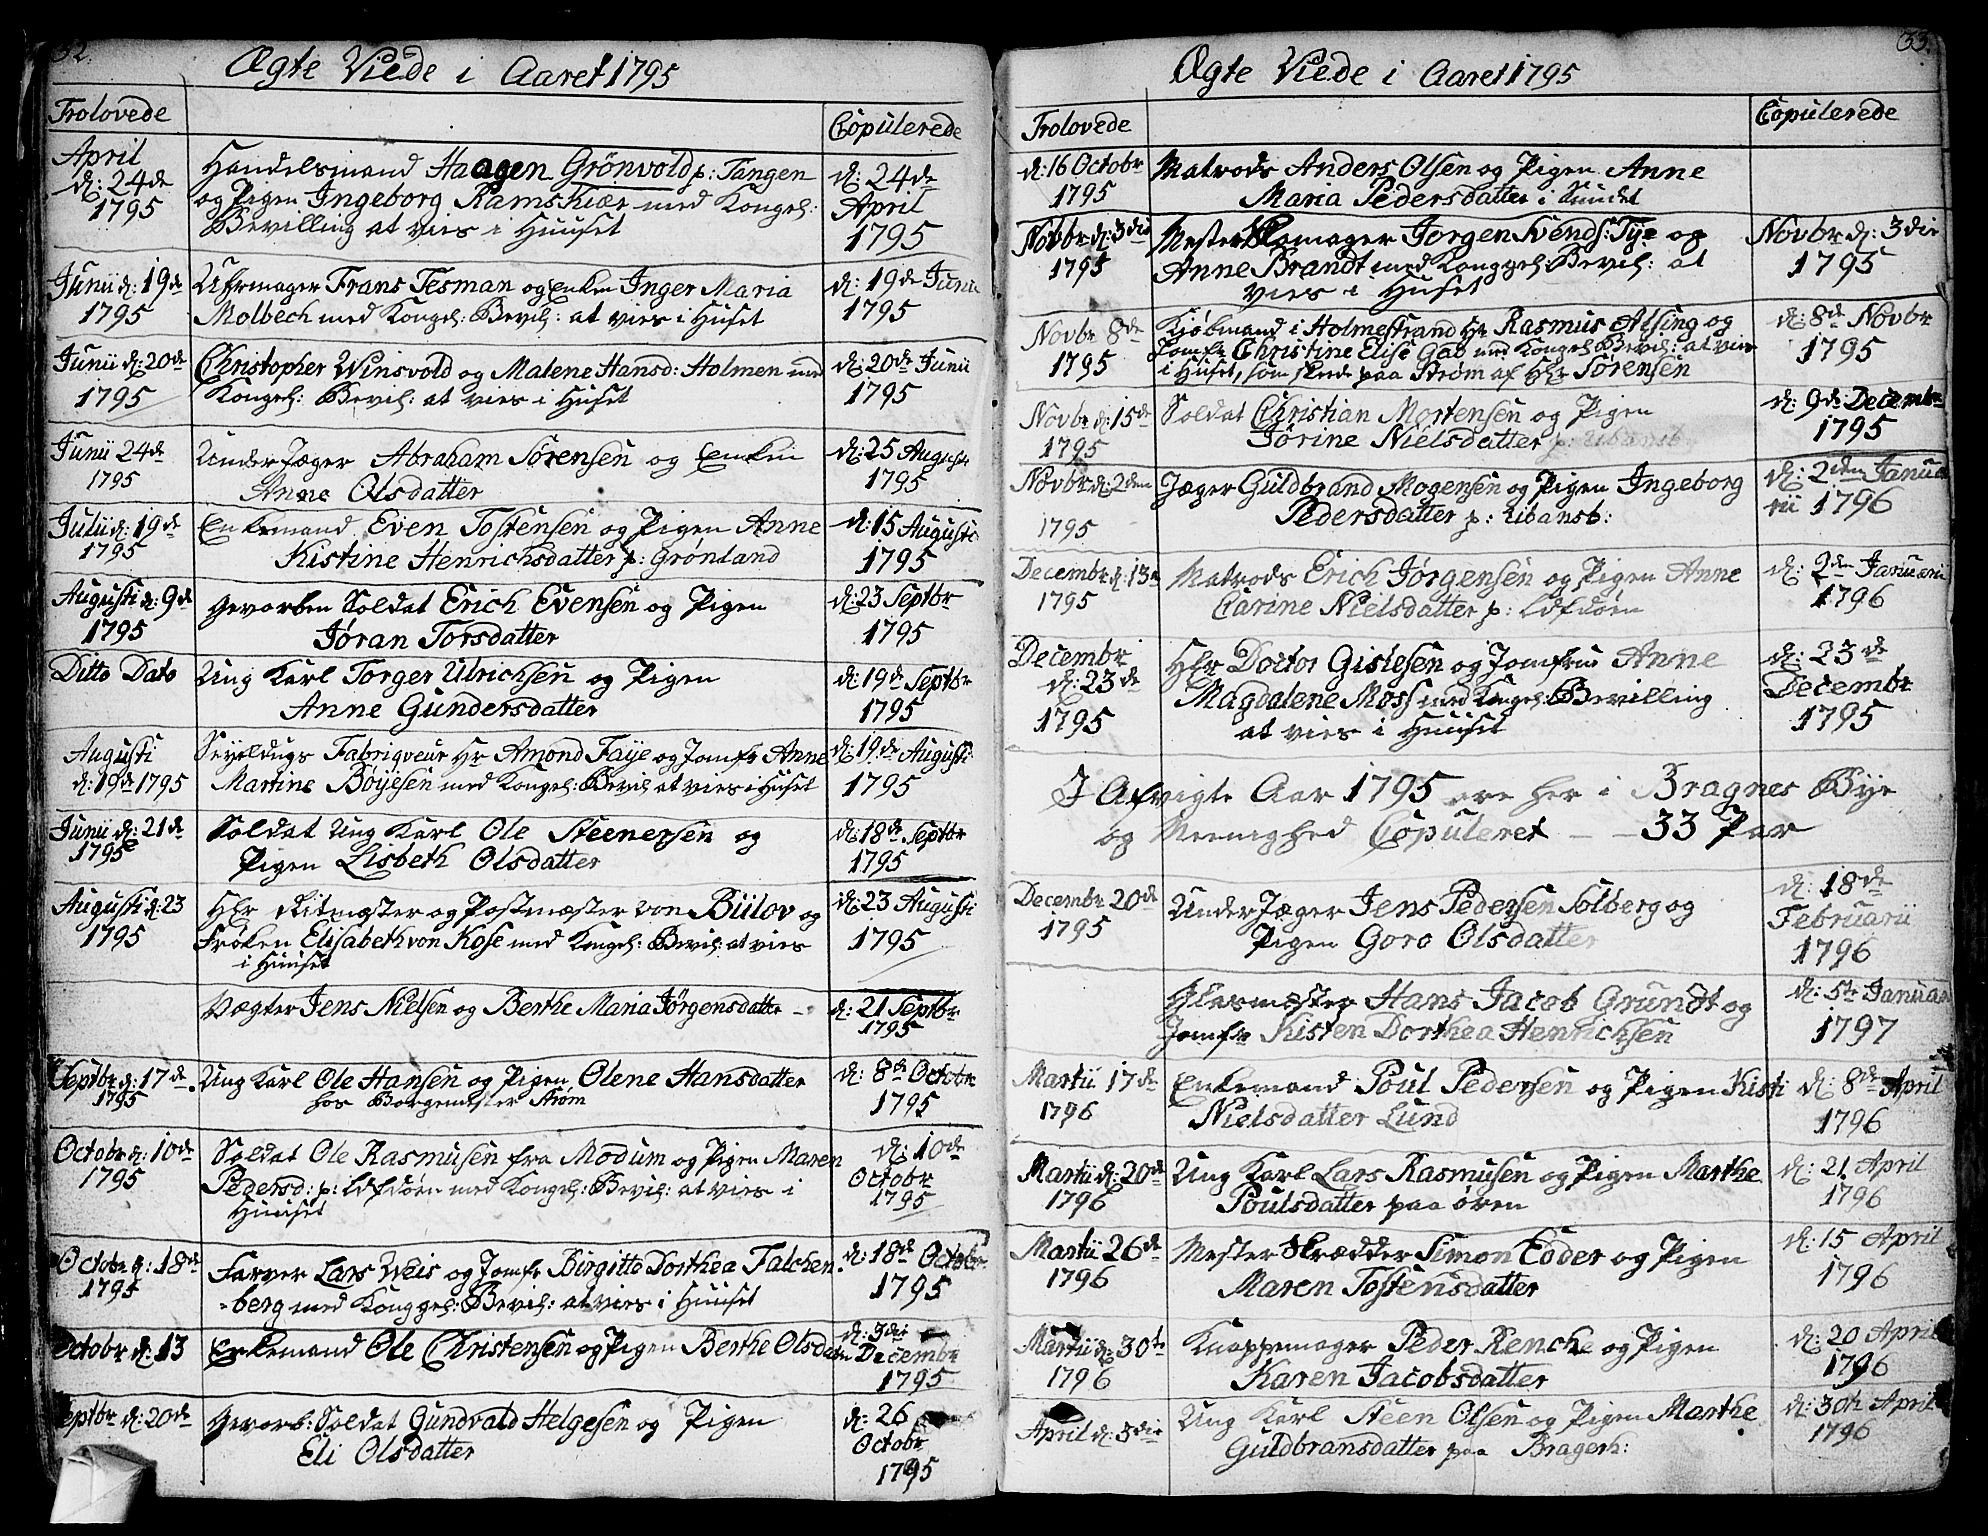 32.
Ægte Viede i Aaret 1795
Trolovede
Copulerede
April
d: 24de
1795
Handelsmand Haagen Grönvold p: Tangen
og Pigen Ingeborg Ramskiær med Kongel:
Bevilling at vies i Huuset
d: 24de
April
1795
Junii d: 19de
1795
Uhrmager Frans Tesman og Enken Inger Maria
Molbech med Kongel: Bevil: at vies i Huset
d: 19de Junii
1795
Junii d: 20de
1795
Christopher Winsvold og Malene Hansd: Holmen med
Kongel: Bevil: at vies i Huset
d: 20de Junii
1795
Junii 24de
1795
Under Jæger Abraham Sørensen og Enken
Anne Olsdatter
d: 25 Augusti
1795
Julii d: 19de
1795
Enkemand Even Tostensen og Pigen Anne
Kistine Henrichsdatter p: Grønland
d: 15 Augusti
1795
Augusti d: 9de
1795
Gevorben Soldat Erich Evensen og Pigen
Jøran Torsdatter
d: 23 Septbr
1795
Ditto Dato
Ung Karl Torger Ulrichsen og Pigen
Anne Gundersdatter
d: 19de Septbr
1795
Augusti
d: 19de 1795
Fabriqveur Hr Amond Faye og Jomfr Anne
Martine Böyesen med Kongel: Bevil at vies i Huset
d: 19de Augusti
1795
Junii d: 21de
1795
Soldat Ung Karl Ole Steenersen og
Pigen Lisbeth Olsdatter
d: 18de Septbr
1795
Augusti d: 23
1795
Hr Ritmester og Postmester von Bülov og
Frøken Elisabeth von Kose med Kongel: Bevil: at vies
i Huuset
d: 23 Augusti
1795
Vægter Jens Nielsen og Berthe Maria Jørgensdatter
d: 21 Septbr
1795
Septbr d: 17de
1795
Ung Karl Ole Hansen og Pigen Olene Hansdatter
hos Borgemester Strøm
d: 8de Octobr
1795
Octobr d: 10de
1795
Soldat Ole Rasmusen fra Modum og Pigen Maren
Pedersd: p: med Kongel: Bevil: at vies i
Huuset
d: 10de
Octobr
1795
Octobr d: 18de
1795
Farver Lars Weis og Jomfr Birgitte Dorthea Falchen
-berg med Konggel: Bevil: at vies i Huuset
d: 18de Octobr
1795
Octobr d: 13
Enkemand Ole Christensen og Pigen Berthe Olsdatter
d: 3die
Decembr
1795
Septbr d: 20de
Gevorb: Soldat Gundvald Helgesen og Pigen
Eli Olsdatter
d: 26
Octobr
1795
33.
Ægte Viede i Aaret 1795
Trolovede
Copulerede
d: 16 Octobr
1795
Matrods Anders Olsen og Pigen Anne
Maria Pedersdatter i Sundet
Novbr d: 3die
1795
Mester Skomager Jørgen Svends: Tye og
Anne Brandt med Konggel: Bevil: at
vies i Huset
Novbr d: 3die
1795
Novbr 8de
1795
Kjøbmand i Holmestrand Hr Rasmus Alsing og
Jomfr Christine Elise Gab med Kongel: Bevil: at vies
i Huset, som skede paa Strøm af Hr Sørensen
d: 8de Novbr
1795
Novbr d: 15de
1795
Soldat Christian Mortensen og Pigen
Jørine Nielsdatter
d: 9de Decembr
1795
Novbr d: 2den
1795
Jæger Guldbrand Mogensen og Pigen Ingeborg
Pedersdatter p: Ubansb:
d: 2den Janua
rii 1796
Decembr d: 13de
1795
Matrods Erich Jørgensen og Pigen Anne
Carine Nielsdatter p:
d: 2den Januarii
1796
Decembr
d: 23de
1795
Hr Doctor Gislesen og Jomfrue Anne
Magdalene Moss med Kongel: Bevilling
at vies i Huuset
d: 23de
Decembr
1795
I Afvigte Aar 1795 ere her i Bragnes Bye
og Meenighed Copuleret - - 33 Par
Decembr 20de
1795
Under Jæger Jens Pedersen Solberg og
Pigen Goro Olsdatter
d: 18de
Februarii
1796
Glarmester Hans Jacob Grundt og
Jomfr Kisten Dorthea Henrichsen
d: 5te Januarii
1797
Martii 17de
1796
Enkemand Poul Pedersen og Pigen Kisti
Nielsdatter Lund
d: 8de April
1796
Martii d: 20de
1796
Ung Karl Lars Rasmusen og Pigen Marthe
Poulsdatter paa øren
d: 21 April
1796
Martii 26de
1796
Mester Skrædder Simon Edder og Pigen
Maren Tostensdatter
d: 15 April
1796
Martii d: 30te
1796
Knappemager Peder Renche og Pigen
Karen Jacobsdatter
d: 20 April
1796
April d: 3die
Ung Karl Steen Olsen og Pigen Marthe
Guldbransdatter paa Bragerh:
d: 30te April
1796